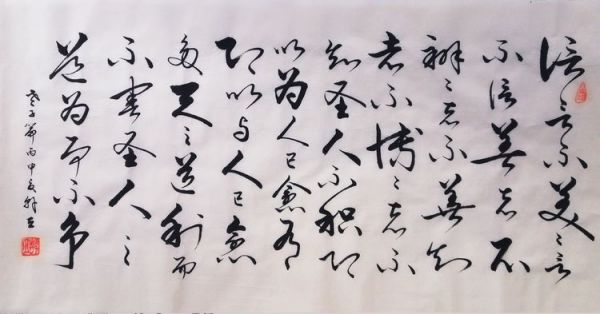 信言不美〻言
不信善者不
辯〻者不善知
者不博〻者不
知圣人不积既
以为人己愈有
既以与人己愈
多天之道利而
不害圣人之
道为而不争
老子篇丙申夏